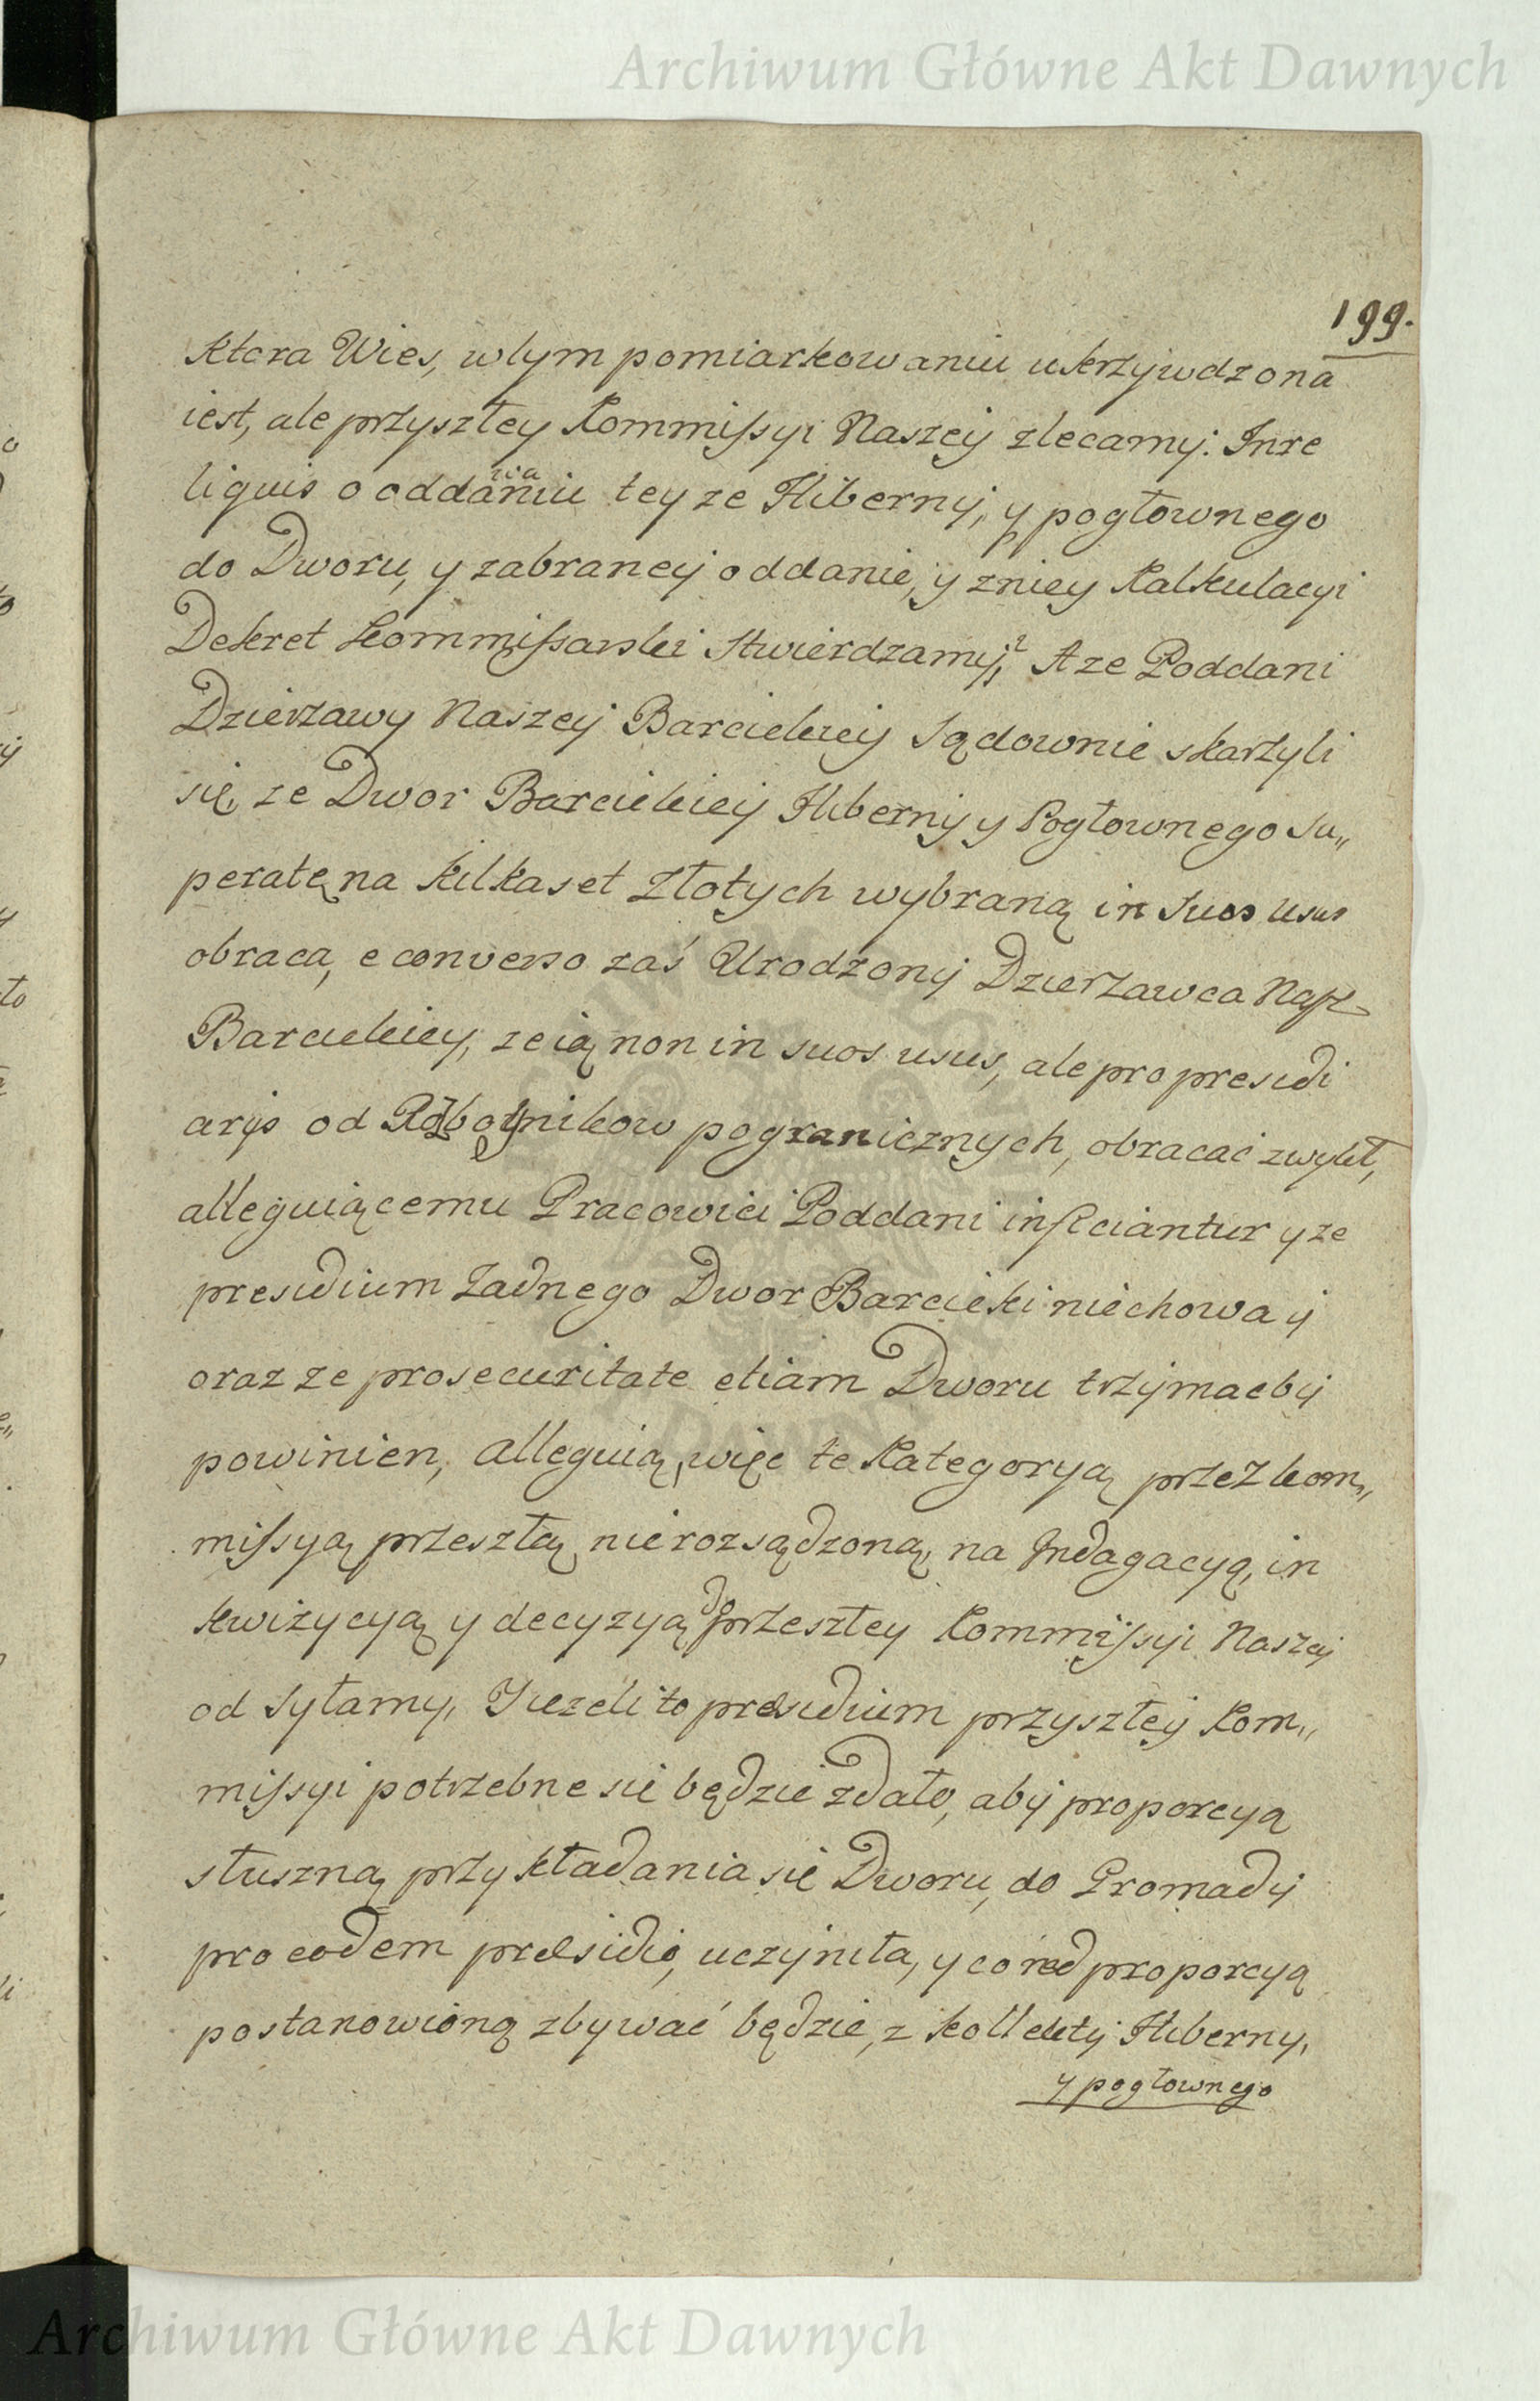 Archiwum Główne Akt Dawnych
199.
ktora Wies, w tym pomiarkowaniu ukrzywdzona
iest, ale przyszłey Kommissyi Naszey zlecamy. Inre
liquis o oddawaniu tey ze Hiberny, y pogłownego
do Dworu, y zabraney oddanie, y zniey Kalkulacyi
Dekret kommissarski Stwierdzamy, A ze Poddani
Dzierzawy Naszey Barcickiey Sądownie skarżyli
się, ze Dwor Barcickiey Hiberny y Pogłownego Su„
peratę na kilkaset Złotych wybraną in Suos Usus
obraca, e converso zaś Urodzony Dzierzawca Nasz
Barcickiey, ze ią non in suos usus, ale pro presidi
arys od Rozboynikow pogranicznych, obracać zwykł,
alleguiącemu Pracowici Poddani inficiantur y ze
presidium Zadnego Dwor Barcicki niechowa y
oraz ze prosecuritate etiam Dworu trzymac by
powinien, alleguią, więc te Kategoryą przez kom„
missyą przeszłą nierozsądzoną, na Indagacyą, in
kwizycyą y decyzyą do przeszłey Kommissyi Naszey
od Syłamy, Jiezeli to præsidium przyszłey Kom„
missyi potrzebne się będzie zdało, aby proporcyą
słuszną przykładania się Dworu, do Gromady
pro eodem præsidio, uczyniła, y co nad proporcyą
postanowioną zbywać będzie, z kollekty Hiberny,
y pogłownego
Archiwum Główne Akt Dawnych